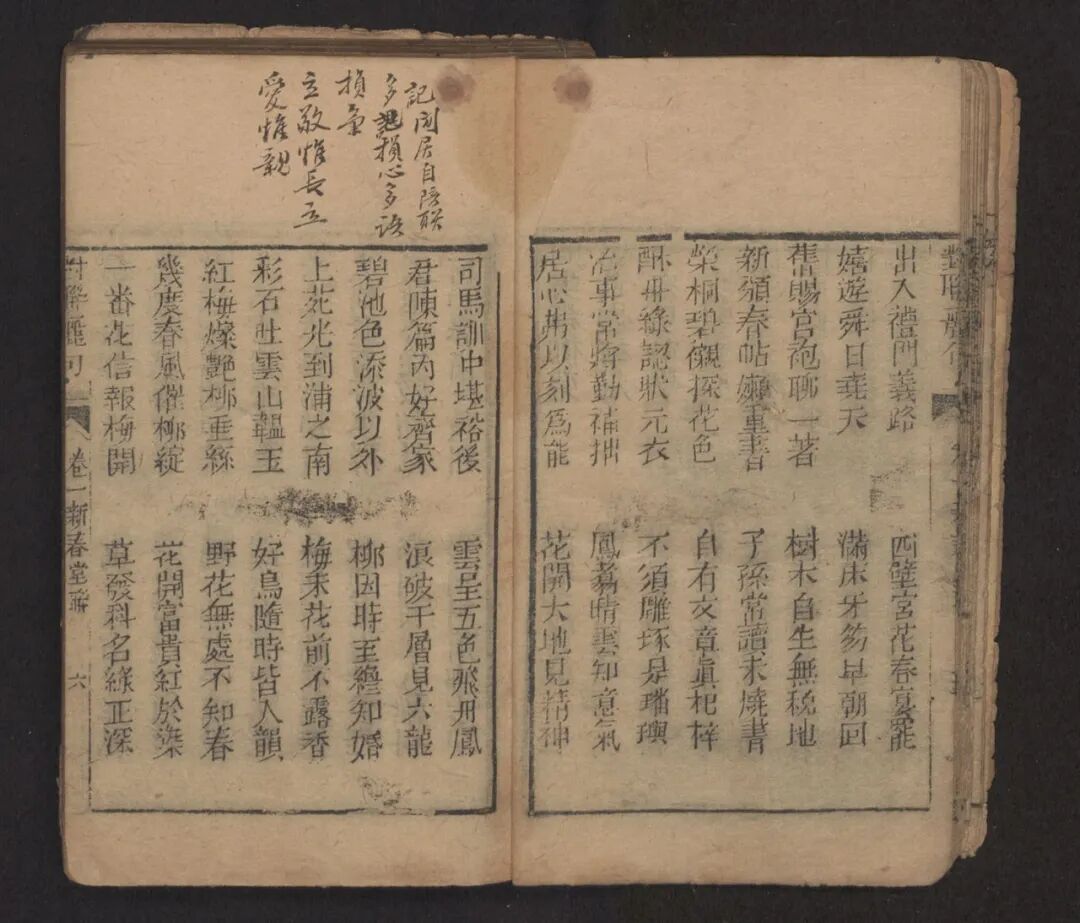 對聯麗句
出入禮門義路
四壁宮花春宴罷
嬉遊舜日堯天
滿床牙笏早朝回
舊賜宮袍聊一著
樹木自生無稅地
新頒春帖嬾重書
子孫常讀未燒書
柴桐碧儭探花色
自有文章眞杞梓
酥毋綠認狀元衣
不須雕琢是璠璵
治事常將勤補拙
鳳翥晴雲知意氣
居心弗以刻爲能
花開大地見精神
記閒居自陪聯
多記損心多語
損氣
立敬惟長立
愛惟親
司馬訓中堪裕後
雲呈五色飛丹鳳
君陳篇內好齊家
浪破千層見六龍
碧池色添波以外
柳因時至纔知婚
上苑光到浦之南
梅未花前不露香
彩石吐雲山韞玉
好鳥隨時皆人韻
紅梅燦艷柳垂絲
野花無處不知春
幾度春風催柳綻
花開富貴紅於染
一番花信報梅開
草發科名綠正深
對聯麗句
卷一新春堂聯
六